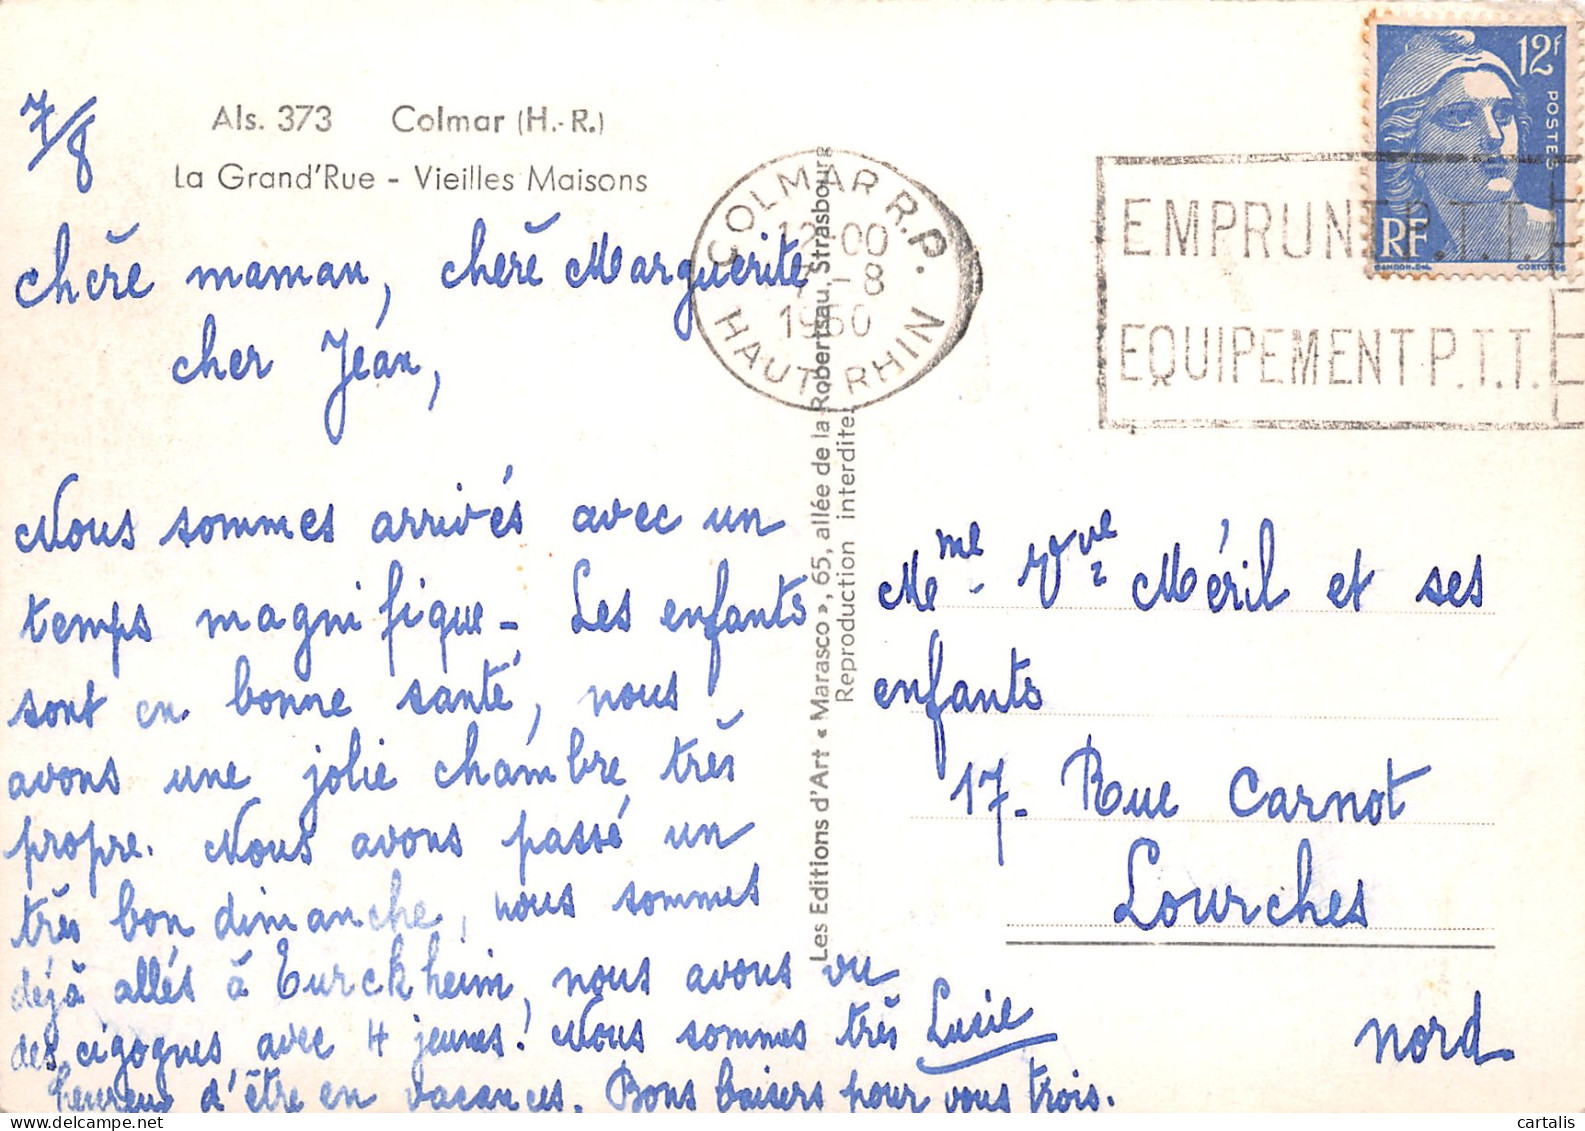 7/8
Als. 373 Colmar (H.-R.)
La Grand'Rue - Vieilles Maisons
Chère maman, chère Marguerite
cher Jean,
Nous sommes arrivés avec un
temps magnifique - Les enfants
sont en bonne santé, nous
avons une jolie chambre très
propre. Nous avons passé un
très bon dimanche, nous sommes
déjà allés à Turckheim, nous avons vu
des cigognes, avec 4 jeunes! Nous sommes très
heureux d'être en vacances. Bons baisers pour vous trois.
Lucie
Les Editions d'Art « Marasco », 65, allée de la Robertsau, Strasbourg
Reproduction interdite.
COLMAR R.P.
12-00
7-8
1950
HAUT RHIN
EMPRUNT P.T.T.
EQUIPEMENT P.T.T.
12f
POSTES
RF
GANDON-DEL.
CORTOT-SC
Mme Vve Méril et ses
enfants
17- Rue Carnot
Lourches
Nord
cartalis